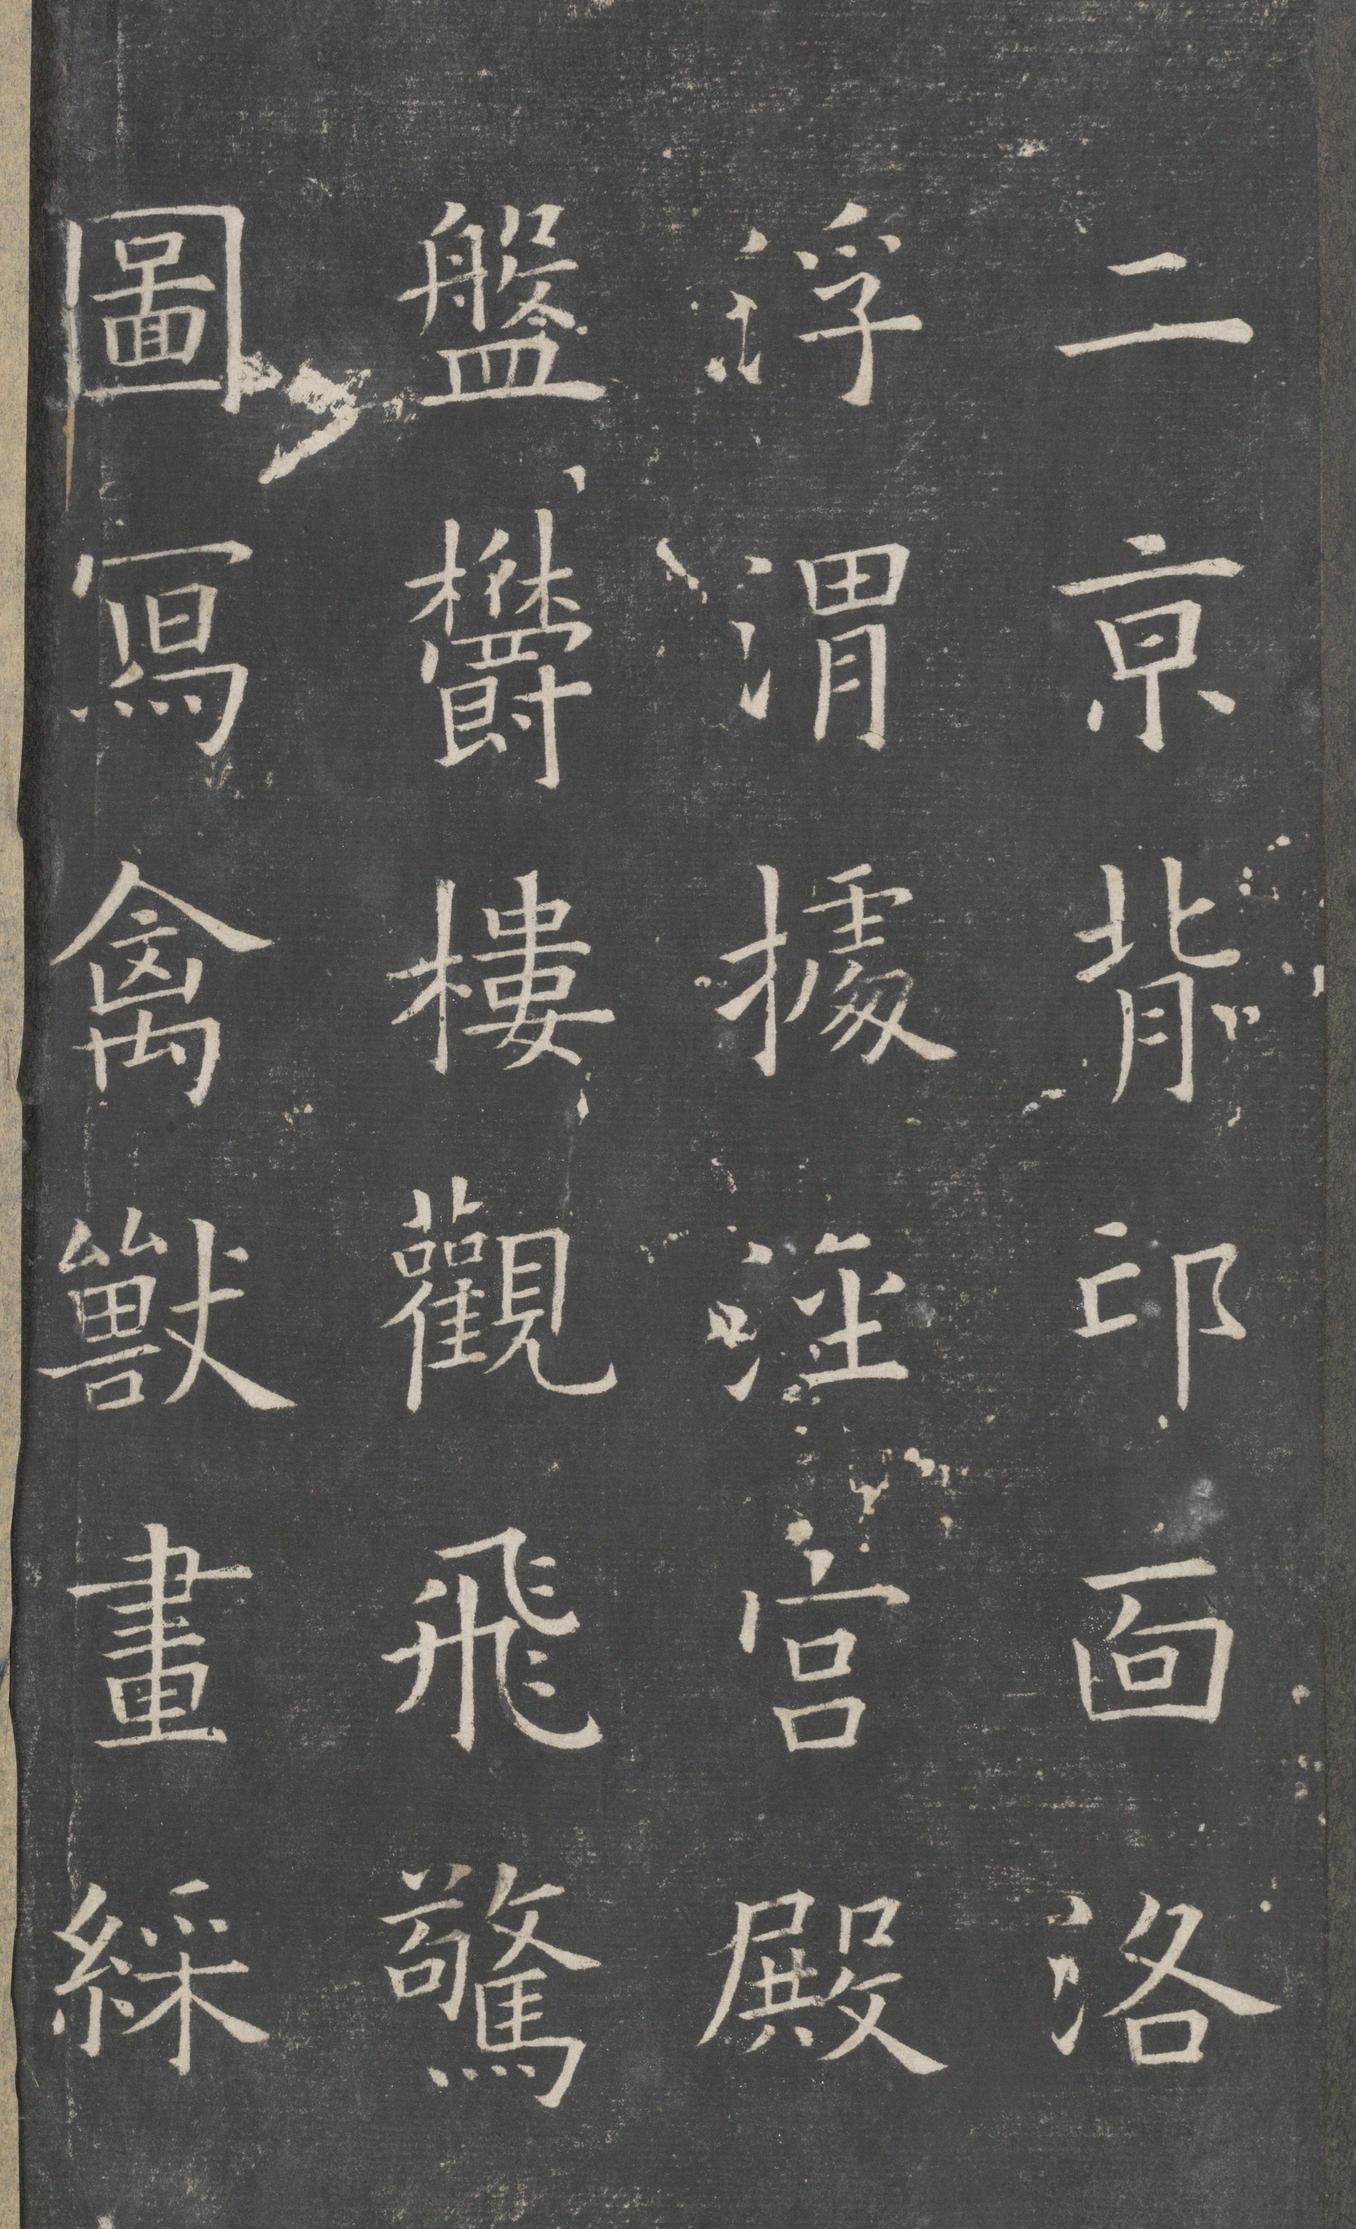 二京背邙面洛
浮渭據涇宫殿
盤欝樓觀飛驚
圖寫禽獸畫綵